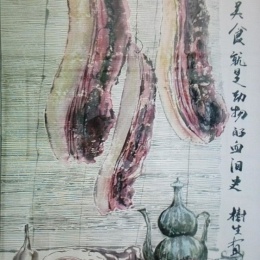 美食就是动物的血泪史 樹生画